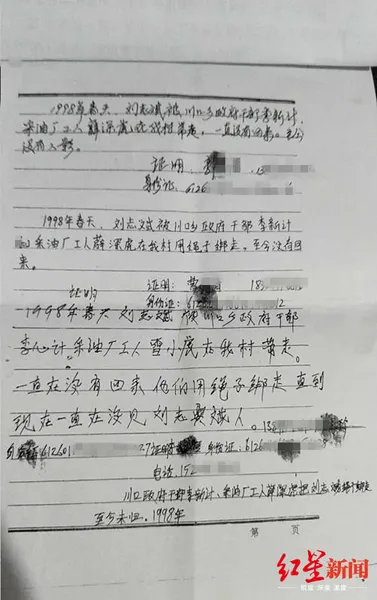 1998年春天,刘志斌被川口乡政府干部李新计,
采油厂工人薛深虎在我村带走,一直没有回来。至今
没有人影
证明:
身份证:6126
1998年春天,刘志斌被川口乡政府干部李新计
和采油厂工人薛深虎在我村用绳子绑走。至今没有回
来。
证明: 18
证明 身份证:612 12
1998年春天刘志斌被川口乡政府干部
李心计。采油厂工人雪小虎在我村带走。
一直在没有回家他们用绳子绑走直到
现在一直在没见刘志斌人。
612601 27证明 身份证:6126
电话:152
川口政府干部李新计、采油厂工人薛深虎把刘志
至今未归。1998年
第 页
红星新闻